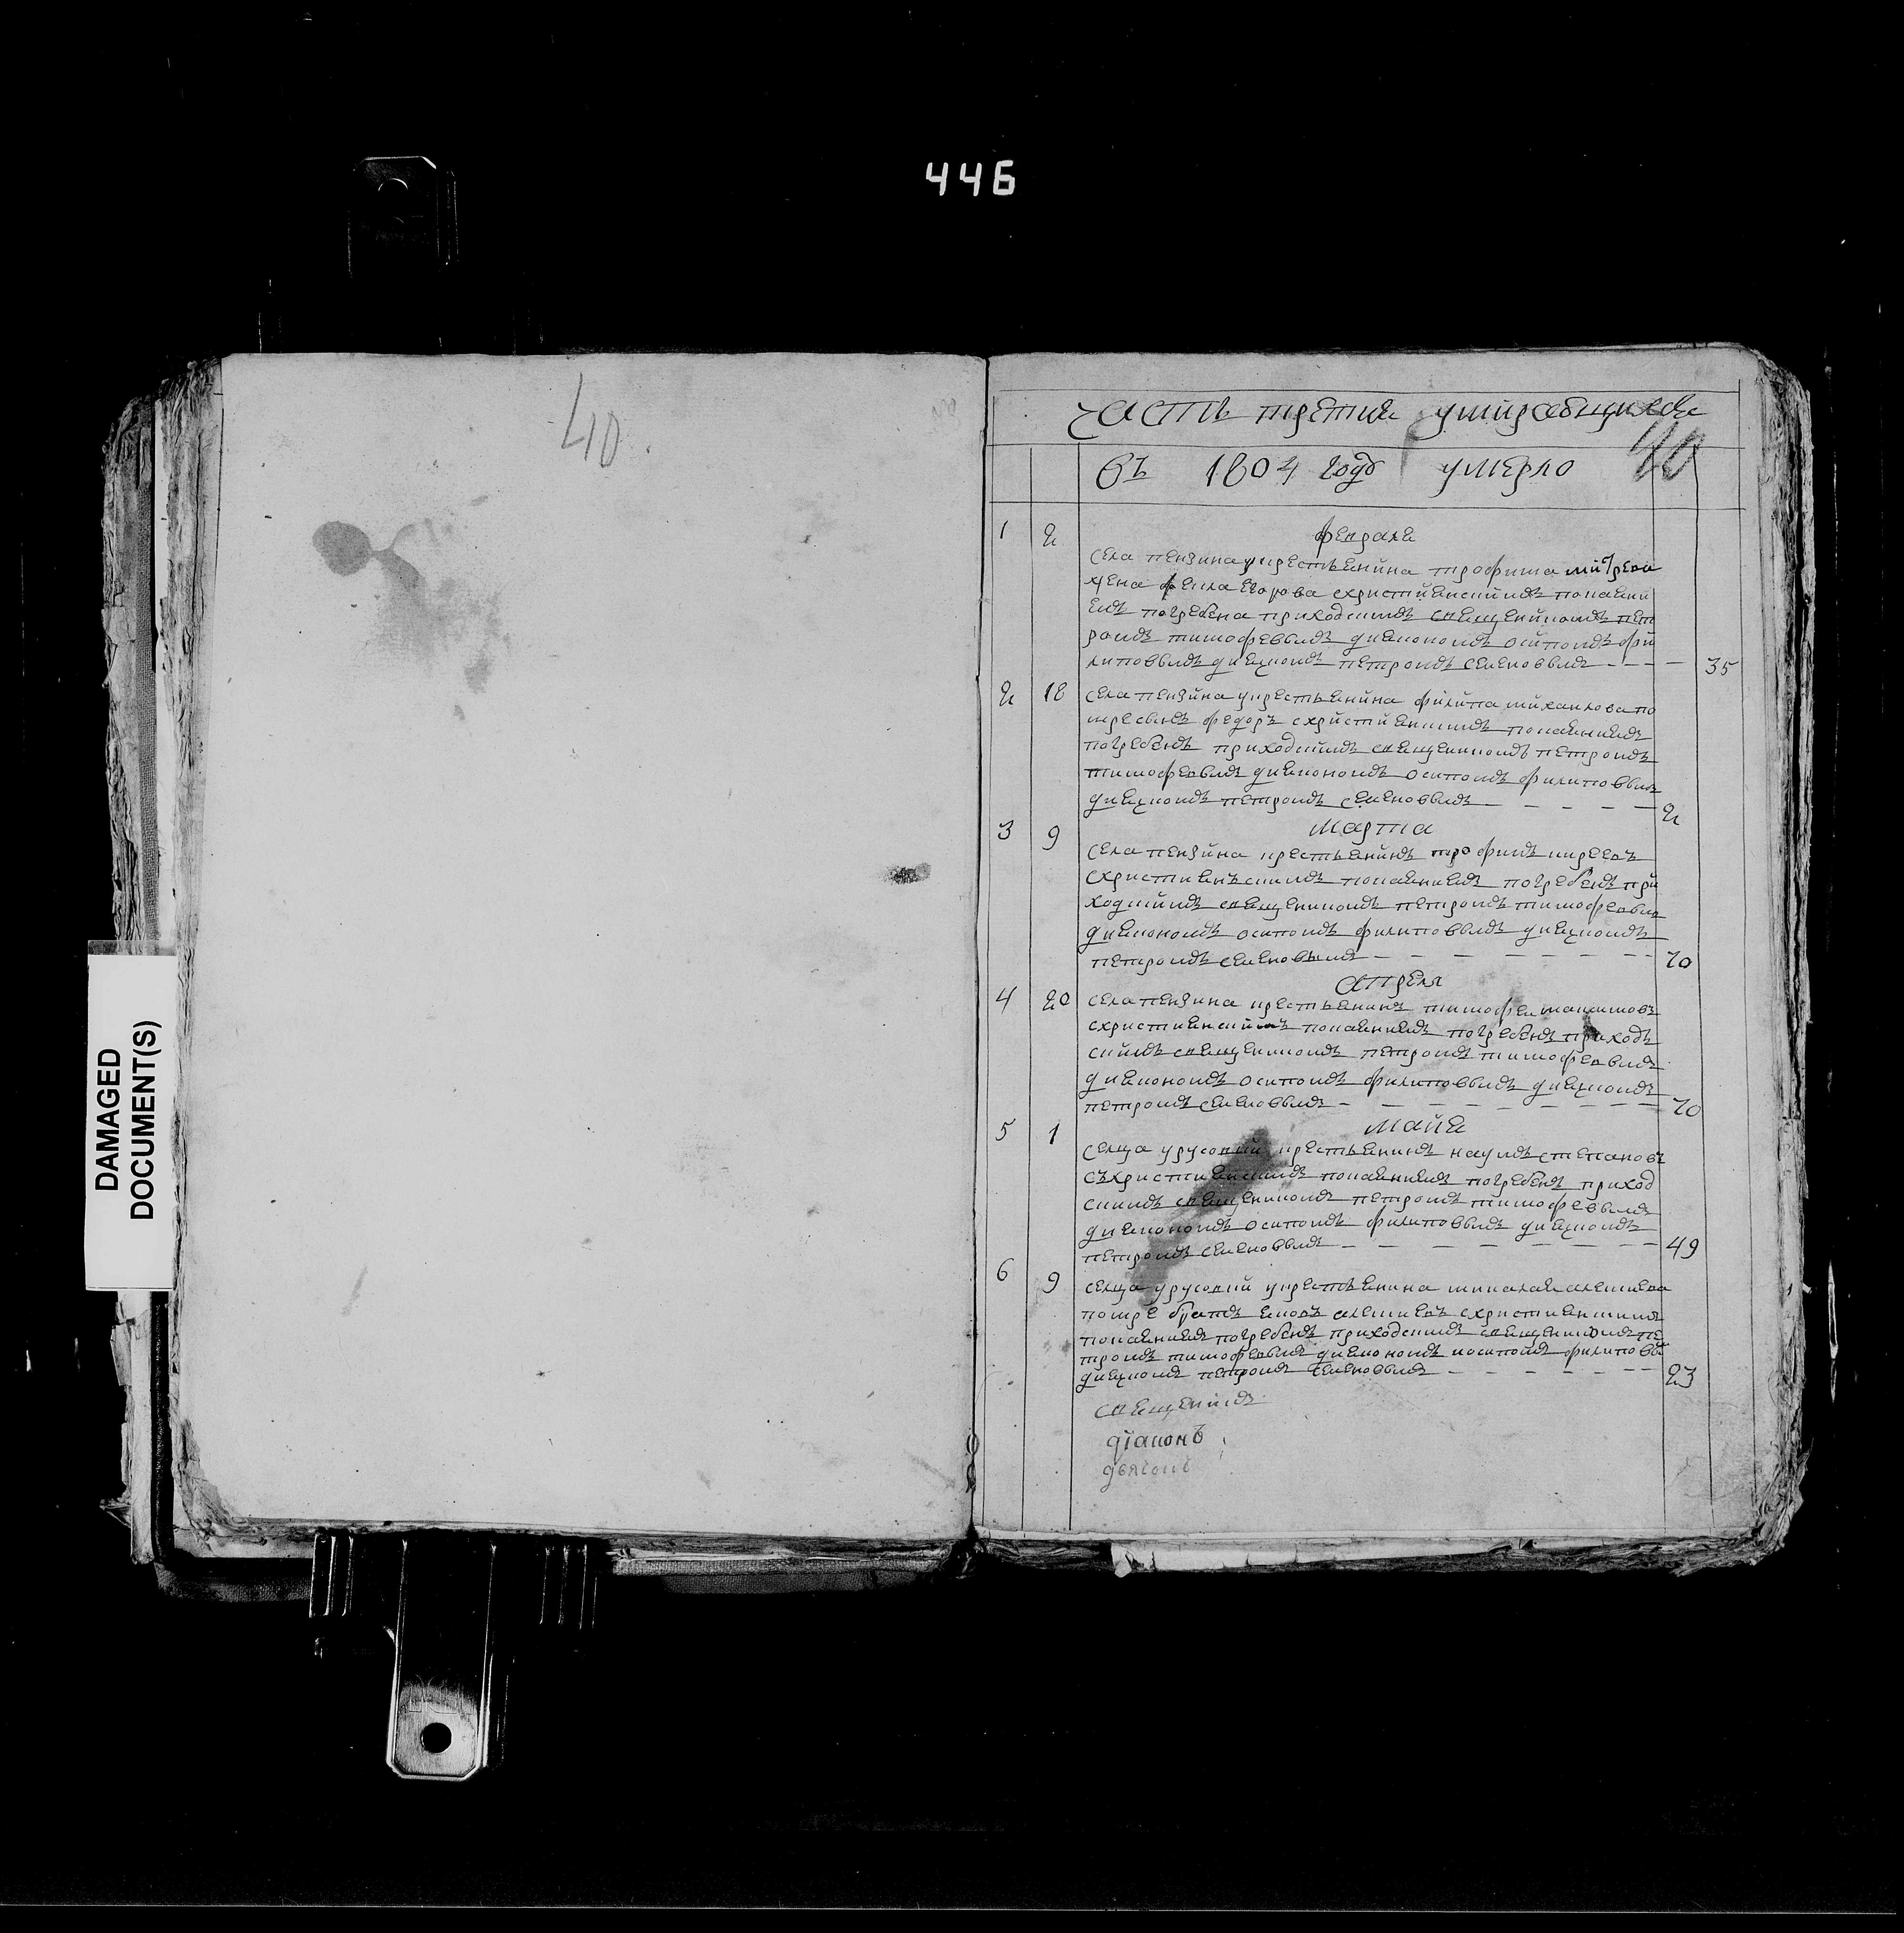 446
40
DAMAGED
DOCUMENT(S)
часть третия умирающихъ
40
въ 1804 году умерло
1 2 февраля
села пензина укрестьянина трофима
жена фекла егорова схристиянскимъ покаяни
емъ погребена приходскимъ священикомъ пет
ромъ тимофеевымъ диякономъ осипомъ фи
липоввымъ диячкомъ петромъ семеноввымъ — — — 35
2 18 села пензина укрестьянина филипа михаилова по
федоръ схристиянскимъ покаяниемъ
погребенъ приходскимъ священикомъ петромъ
тимофеевымъ диякономъ осипомъ филиповвымъ
диячкомъ петромъ семеноввымъ — — — — 2
марта
3 9 села пензина крестьянинъ трофимъ
схристиянъскимъ покаяниемъ погребенъ при
ходскимъ священикомъ петромъ тимофеевым
диякономъ осипомъ филиповвымъ диячкомъ
петромъ семеновымъ — — — — — — 70
апреля
4 20 села пензина крестьянинъ тимофеи максимовъ
схристиянскимъ покаяниемъ погребенъ приходъ
скимъ священикомъ петромъ тимофеевымъ
диякономъ осипомъ филиповвымъ диячкомъ
петромъ семеноввымъ — — — — — — — 70
майя
5 1 селца урусовки крестьянинъ наумъ степановъ
съхристиянскимъ покаяниемъ погребенъ приход
скимъ священикомъ петромъ тимофеввымъ
диякономъ осипомъ филиповвымъ диячкомъ
петромъ семеноввымъ — — — — — — — 49
6 9 селца урусовки укрестьянина николая алексиева
помре братъ схристиянскимъ
покаяниемъ погребенъ приходскимъ священикомъ пе
тромъ тимофеевымъ диякономъ иосипомъ филиповвы
диячкомъ петромъ семеноввымъ — — — — — — 23
священикъ
діаконъ
дьячокъ